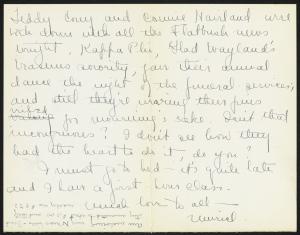 Teddy Cony and Connie Haviland were
down with all the Flatbush news
tonight. Kappa Phi, Glad Wayland's
business sorority, gave their annual
dance the night of the funeral services,
and still they're wearing their pins
for mourning's sake. Isn't that
incongruous? I don't see how they
had the heart to do it, do you?
I must go to bed - it's quite late
and I have a first hour class.
Much love to all -
Muriel.